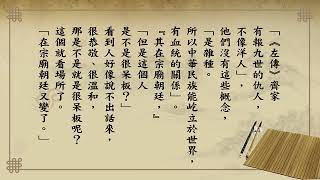 「《左傳》齊家
有報九世的仇人，
不像洋人」，
他們沒有這些概念，
「是雜種。
所以中華民族能屹立於世界，
有血統的關係」。
『其在宗廟朝廷，』
「但是這個人
是不是很呆板？」
看到人好像說不出話來，
很恭敬、很溫和，
那是不是就是很呆板呢？
這個就看場所了。
「在宗廟朝廷又變了。」